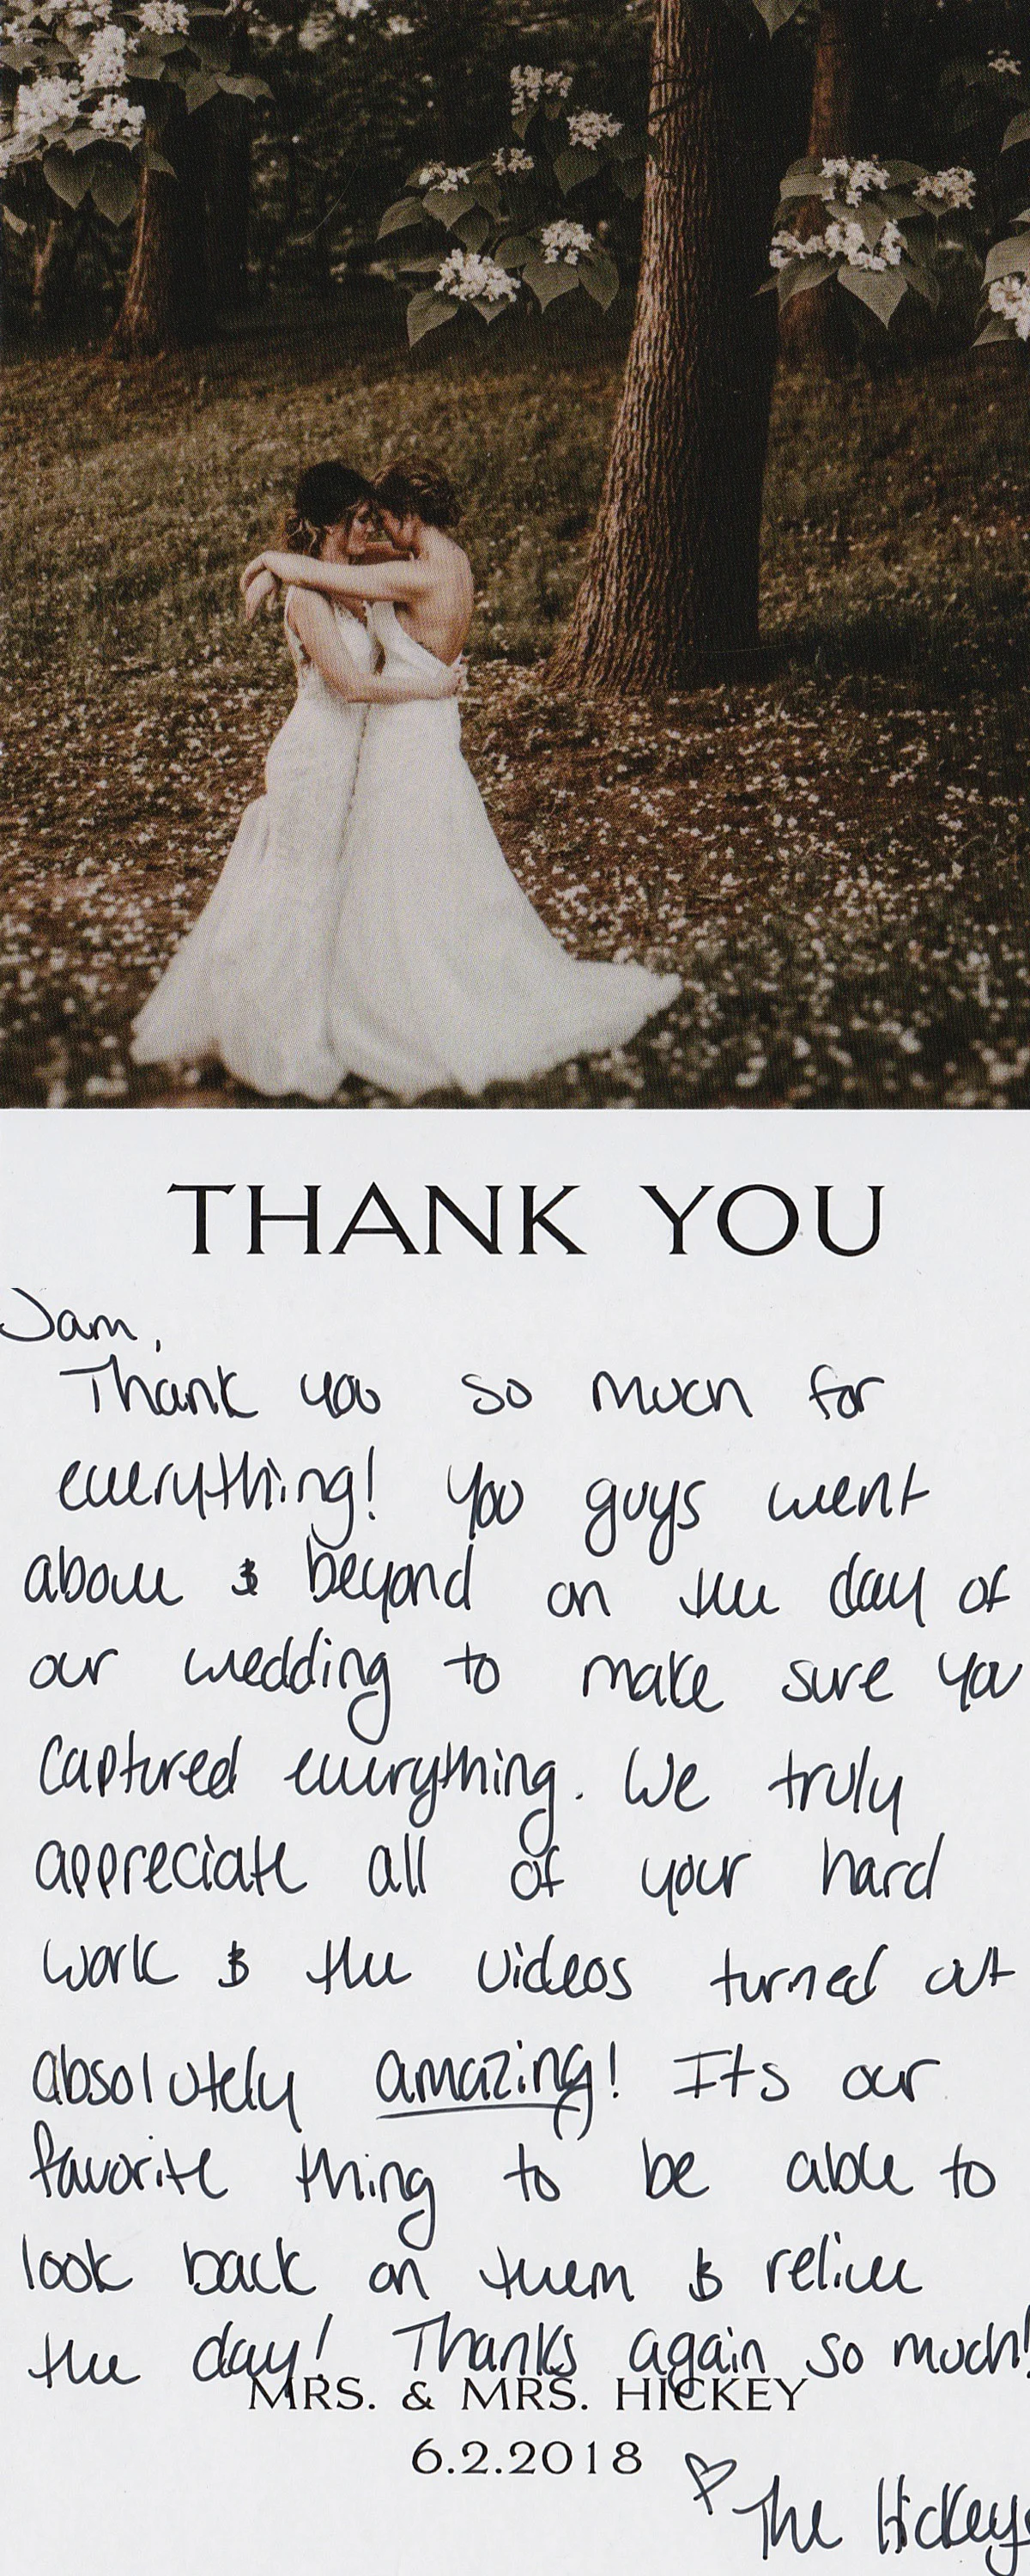 THANK YOU
Jam,
Thank you so much for
everything! You guys went
above & beyond on the day of
our wedding to make sure you
captured everything. We truly
appreciate all of your hard
work & the videos turned out
absolutely amazing! Its our
favorite thing to be able to
look back on them & relive
the day! Thanks again so much!
MRS. & MRS. HICKEY
6.2.2018
♡ The Hickeys